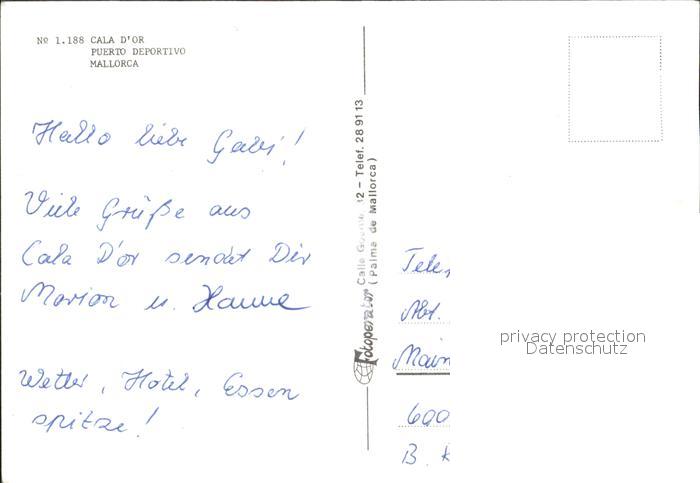 Nº 1.188 CALA D'OR
PUERTO DEPORTIVO
MALLORCA
Hallo liebe Gabi!
Viele Grüße aus
Cala D'or sendet Dir
Marion u. Hanne
Wetter, Hotel, Essen
spitze!
Fotoperator Calle 12 - Telef. 28 91 13
(Palma de Mallorca)
Tele
Abt.
600
B.
privacy protection
Datenschutz